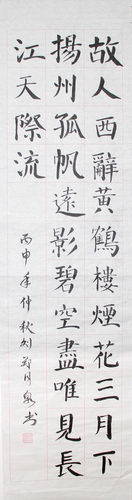 故人西辭黃鶴樓煙花三月下
揚州孤帆遠影碧空盡唯見長
江天際流
丙申年仲秋